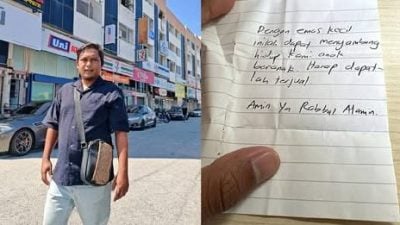 Uni
Dengan emas kecil
inilah dapat menyambung
hidup kami anak
beranak. Harap dapat
lah terjual.
Amin Ya Rabbal Alamin.